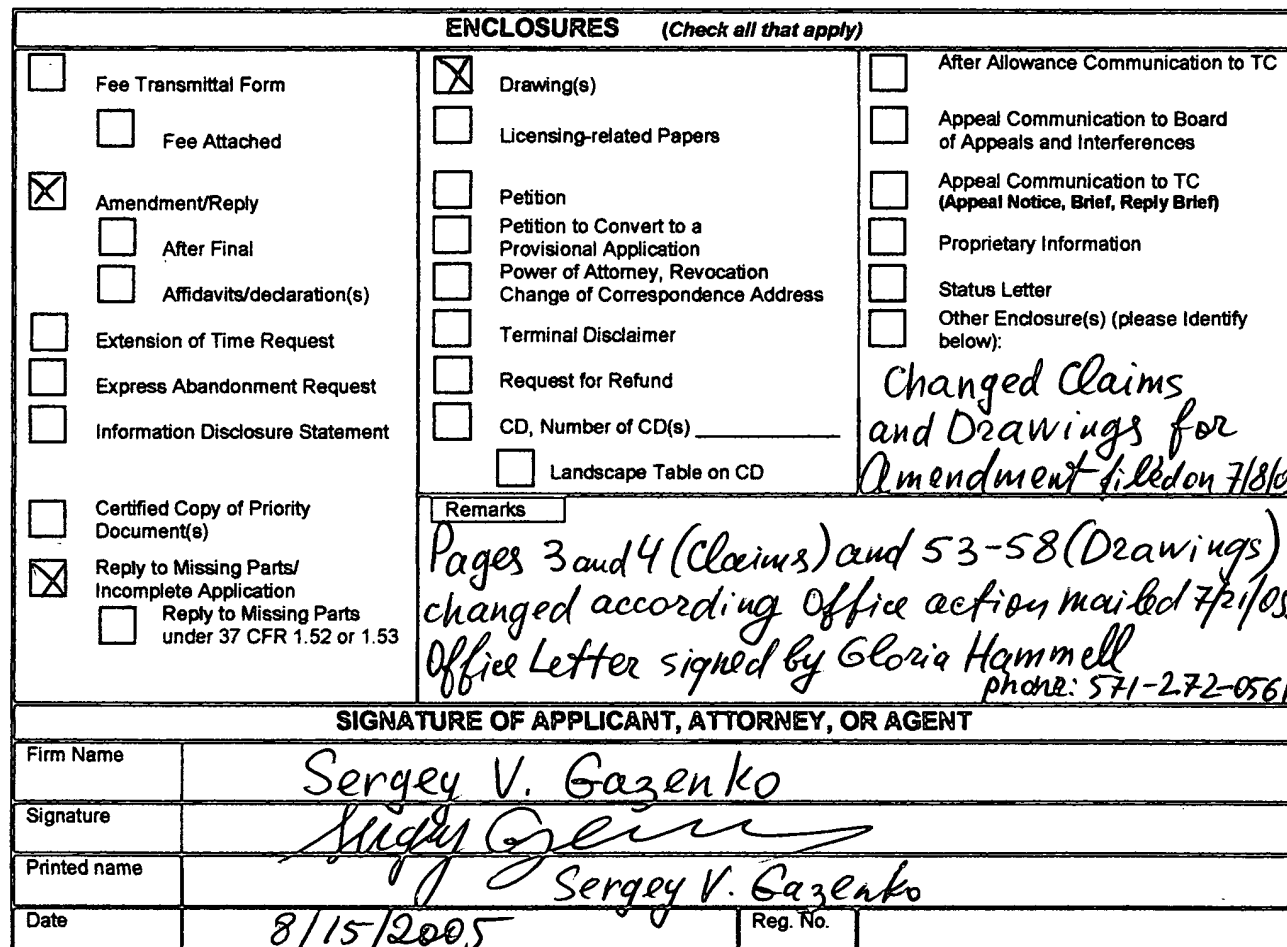 ENCLOSURES (Check all that apply)
Fee Transmittal Form
Fee Attached
Amendment/Reply
After Final
Affidavits/declaration(s)
Extension of Time Request
Express Abandonment Request
Information Disclosure Statement
Certified Copy of Priority
Document(s)
Reply to Missing Parts/
Incomplete Application
Reply to Missing Parts
under 37 CFR 1.52 or 1.53
Drawing(s)
Licensing-related Papers
Petition
Petition to Convert to a
Provisional Application
Power of Attorney, Revocation
Change of Correspondence Address
Terminal Disclaimer
Request for Refund
CD, Number of CD(s)
Landscape Table on CD
After Allowance Communication to TC
Appeal Communication to Board
of Appeals and Interferences
Appeal Communication to TC
(Appeal Notice, Brief, Reply Brief)
Proprietary Information
Status Letter
Other Enclosure(s) (please Identify
below):
Changed Claims
and Drawings for
Amendment filed on 7/8/0
Remarks
Pages 3 and 4 (Claims) and 53-58 (Drawings)
changed according Office action mailed 7/21/05
Office Letter signed by Gloria Hammell
phone: 571-272-0561
SIGNATURE OF APPLICANT, ATTORNEY, OR AGENT
Firm Name
Sergey V. Gazenko
Signature
Printed name
Sergey V. Gazenko
Date
8/15/2005
Reg. No.